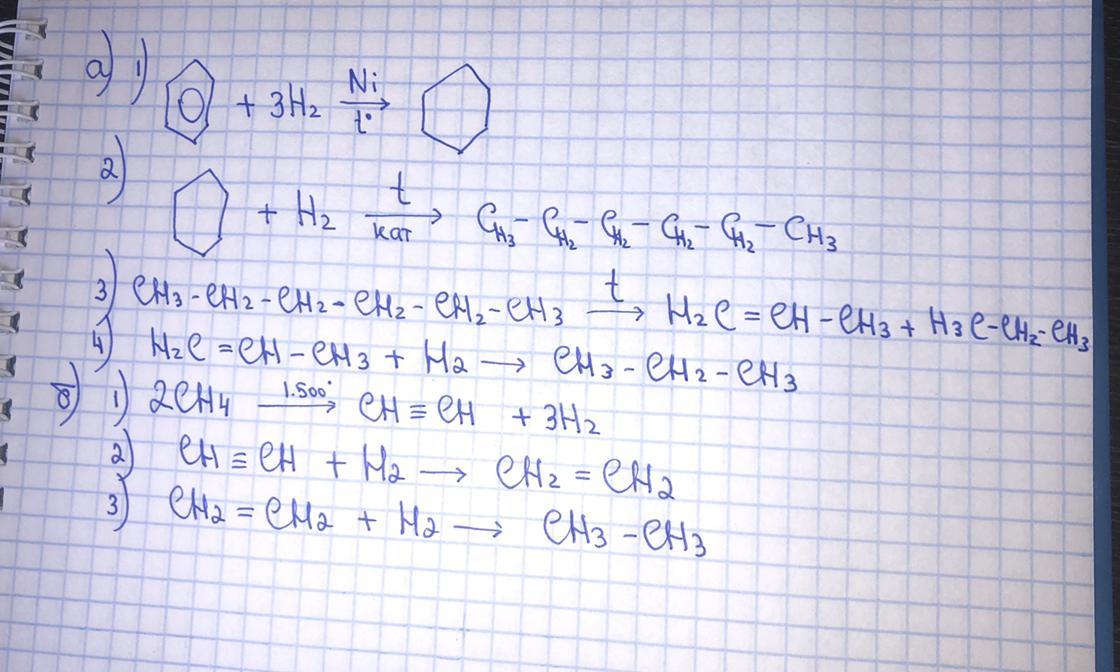 а) 1) + 3H₂ Ni t° →
2) + H₂ t кат → CH₃ - CH₂ - CH₂ - CH₂ - CH₂ - CH₃
3) CH₃ - CH₂ - CH₂ - CH₂ - CH₂ - CH₃ t → H₂C = CH - CH₃ + H₃C - CH₂ - CH₃
4) H₂C = CH - CH₃ + H₂ → CH₃ - CH₂ - CH₃
б) 1) 2CH₄ 1.500° → CH ≡ CH + 3H₂
2) CH ≡ CH + H₂ → CH₂ = CH₂
3) CH₂ = CH₂ + H₂ → CH₃ - CH₃